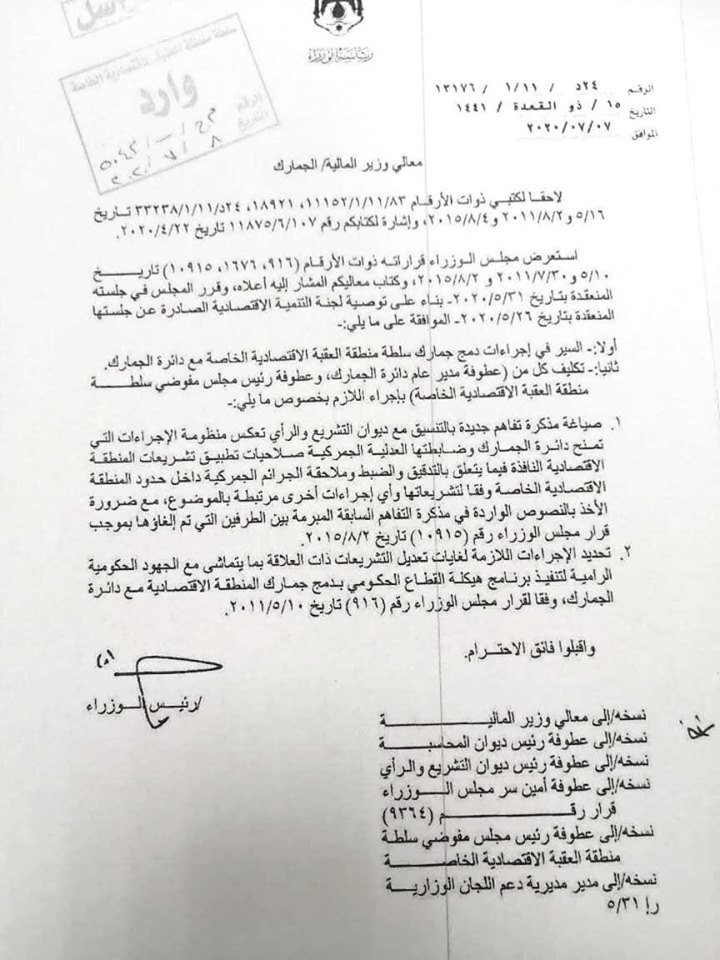 رئاسة الوزراء
سلطة منطقة العقبة الاقتصادية الخاصة
وارد
الرقم
التاريخ
الرقم ٢٤د / ١١ / ١ / ١٣١٧٦
التاريخ ١٥ / ذو القعدة / ١٤٤١
الموافق ٢٠٢٠/٠٧/٠٧
معالي وزير المالية/ الجمارك
لاحقا لكتبي ذوات الأرقام ١١١٥٢/١/١١/٨٣، ١٨٩٢١، ٢٤د/٣٣٢٣٨/١/١١ تاريخ
٥/١٦ و٢٠١١/٨/٢ و٢٠١٥/٨/٤، وإشارة لكتابكم رقم ١١٨٧٥/٦/١٠٧ تاريخ ٢٠٢٠/٤/٢٢.
استعرض مجلس الوزراء قراراته ذوات الأرقام (٩١٦، ١٦٧٦، ١٠٩١٥) تاريخ
٥/١٠ و٢٠١١/٧/٣٠ و٢٠١٥/٨/٢، وكتاب معاليكم المشار إليه أعلاه، وقرر المجلس في جلسته
المنعقدة بتاريخ ٢٠٢٠/٥/٣١- بناء على توصية لجنة التنمية الاقتصادية الصادرة عن جلستها
المنعقدة بتاريخ ٢٠٢٠/٥/٢٦- الموافقة على ما يلي:-
أولا:- السير في إجراءات دمج جمارك سلطة منطقة العقبة الاقتصادية الخاصة مع دائرة الجمارك.
ثانيا:- تكليف كل من (عطوفة مدير عام دائرة الجمارك، وعطوفة رئيس مجلس مفوضي سلطة
منطقة العقبة الاقتصادية الخاصة) بإجراء اللازم بخصوص ما يلي:-
١. صياغة مذكرة تفاهم جديدة بالتنسيق مع ديوان التشريع والرأي تعكس منظومة الإجراءات التي
تمنح دائرة الجمارك وضابطتها العدلية الجمركية صلاحيات تطبيق تشريعات المنطقة
الاقتصادية النافذة فيما يتعلق بالتدقيق والضبط وملاحقة الجرائم الجمركية داخل حدود المنطقة
الاقتصادية الخاصة وفقا لتشريعاتها وأي إجراءات أخرى مرتبطة بالموضوع، مع ضرورة
الأخذ بالنصوص الواردة في مذكرة التفاهم السابقة المبرمة بين الطرفين التي تم إلغاؤها بموجب
قرار مجلس الوزراء رقم (١٠٩١٥) تاريخ ٢٠١٥/٨/٢.
٢. تحديد الإجراءات اللازمة لغايات تعديل التشريعات ذات العلاقة بما يتماشى مع الجهود الحكومية
الرامية لتنفيذ برنامج هيكلة القطاع الحكومي بدمج جمارك المنطقة الاقتصادية مع دائرة
الجمارك، وفقا لقرار مجلس الوزراء رقم (٩١٦) تاريخ ٢٠١١/٥/١٠.
واقبلوا فائق الاحترام.
/رئيس الوزراء
نسخه/إلى معالي وزير المالية
نسخه/إلى عطوفة رئيس ديوان المحاسبة
نسخه/إلى عطوفة رئيس ديوان التشريع والرأي
نسخه/إلى عطوفة أمين سر مجلس الوزراء
قرار رقم (٩٣٦٤)
نسخه/إلى عطوفة رئيس مجلس مفوضي سلطة
منطقة العقبة الاقتصادية الخاصة
نسخه/إلى مدير مديرية دعم اللجان الوزارية
ر إ ٥/٣١